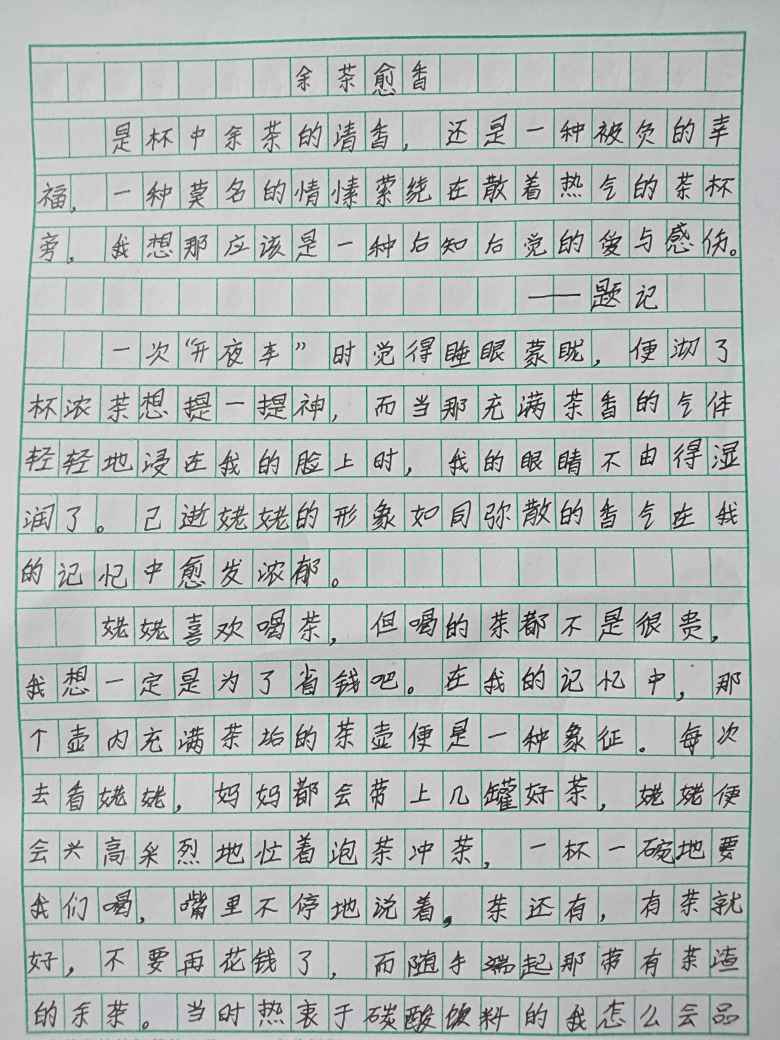 余茶愈香
是杯中余茶的清香，还是一种被负的幸
福，一种莫名的情愫萦绕在散着热气的茶杯
旁，我想那应该是一种后知后觉的爱与感伤。
——题记
一次“开夜车”时觉得睡眼蒙眬，便沏了
杯浓茶想提一提神，而当那充满茶香的气体
轻轻地浸在我的脸上时，我的眼睛不由得湿
润了。已逝姥姥的形象如同弥散的香气在我
的记忆中愈发浓郁。
姥姥喜欢喝茶，但喝的茶都不是很贵，
我想一定是为了省钱吧。在我的记忆中，那
个壶内充满茶垢的茶壶便是一种象征。每次
去看姥姥，妈妈都会带上几罐好茶，姥姥便
会兴高采烈地忙着泡茶冲茶，一杯一碗地要
我们喝，嘴里不停地说着，茶还有，有茶就
好，不要再花钱了，而随手端起那带有茶渣
的余茶。当时热衷于碳酸饮料的我怎么会品